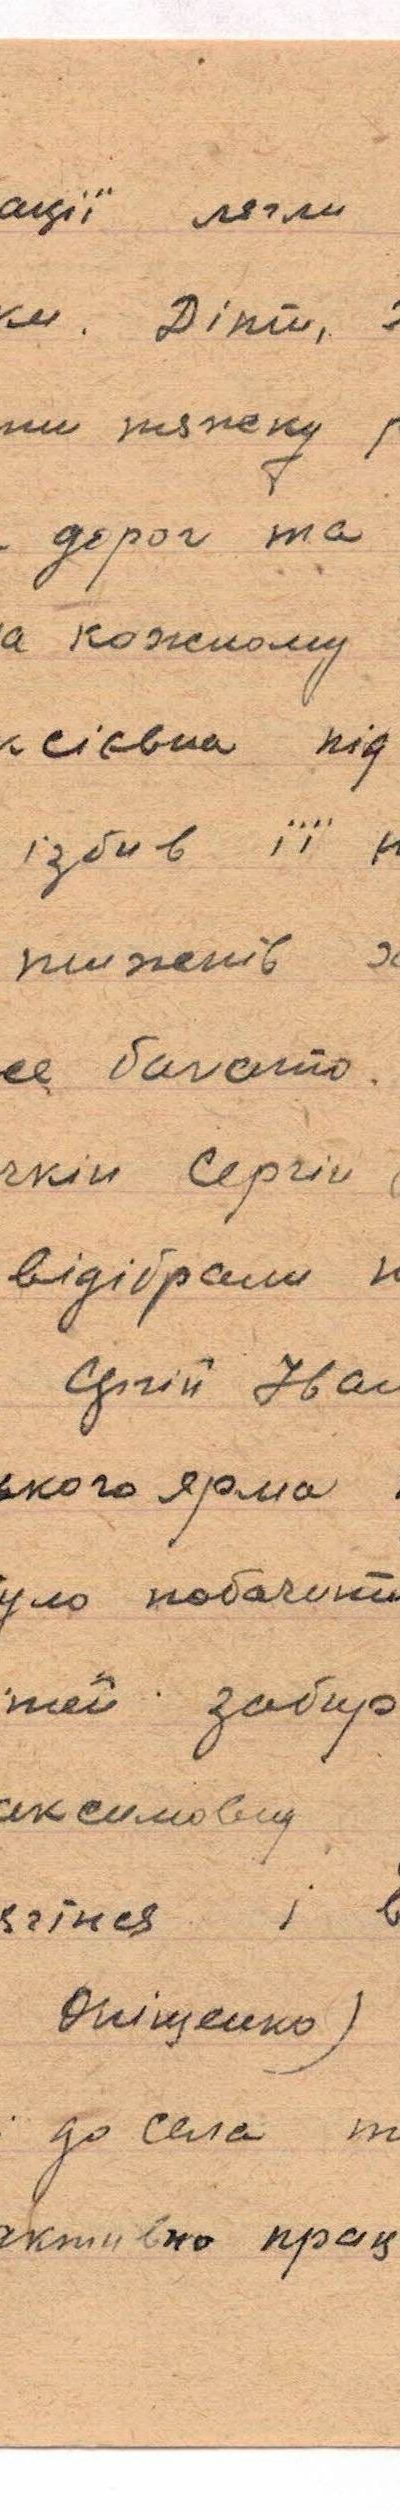 ації лягли
ки. Діти,
ти тяжку
дорог та
а кожному
ксієвна під
ізбив її
тиженів
ее багато.
чкін Сергій
відібрали н
Сергій Іван
ького ярма
уло побачити
ітей забир
аксимовну
ягтися і в
Оніщенко)
до села т
активно прац